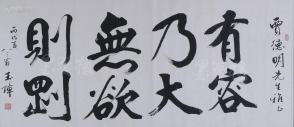 賈德明先生雅正
有容
乃大
無欲
則剛
丙戌
王